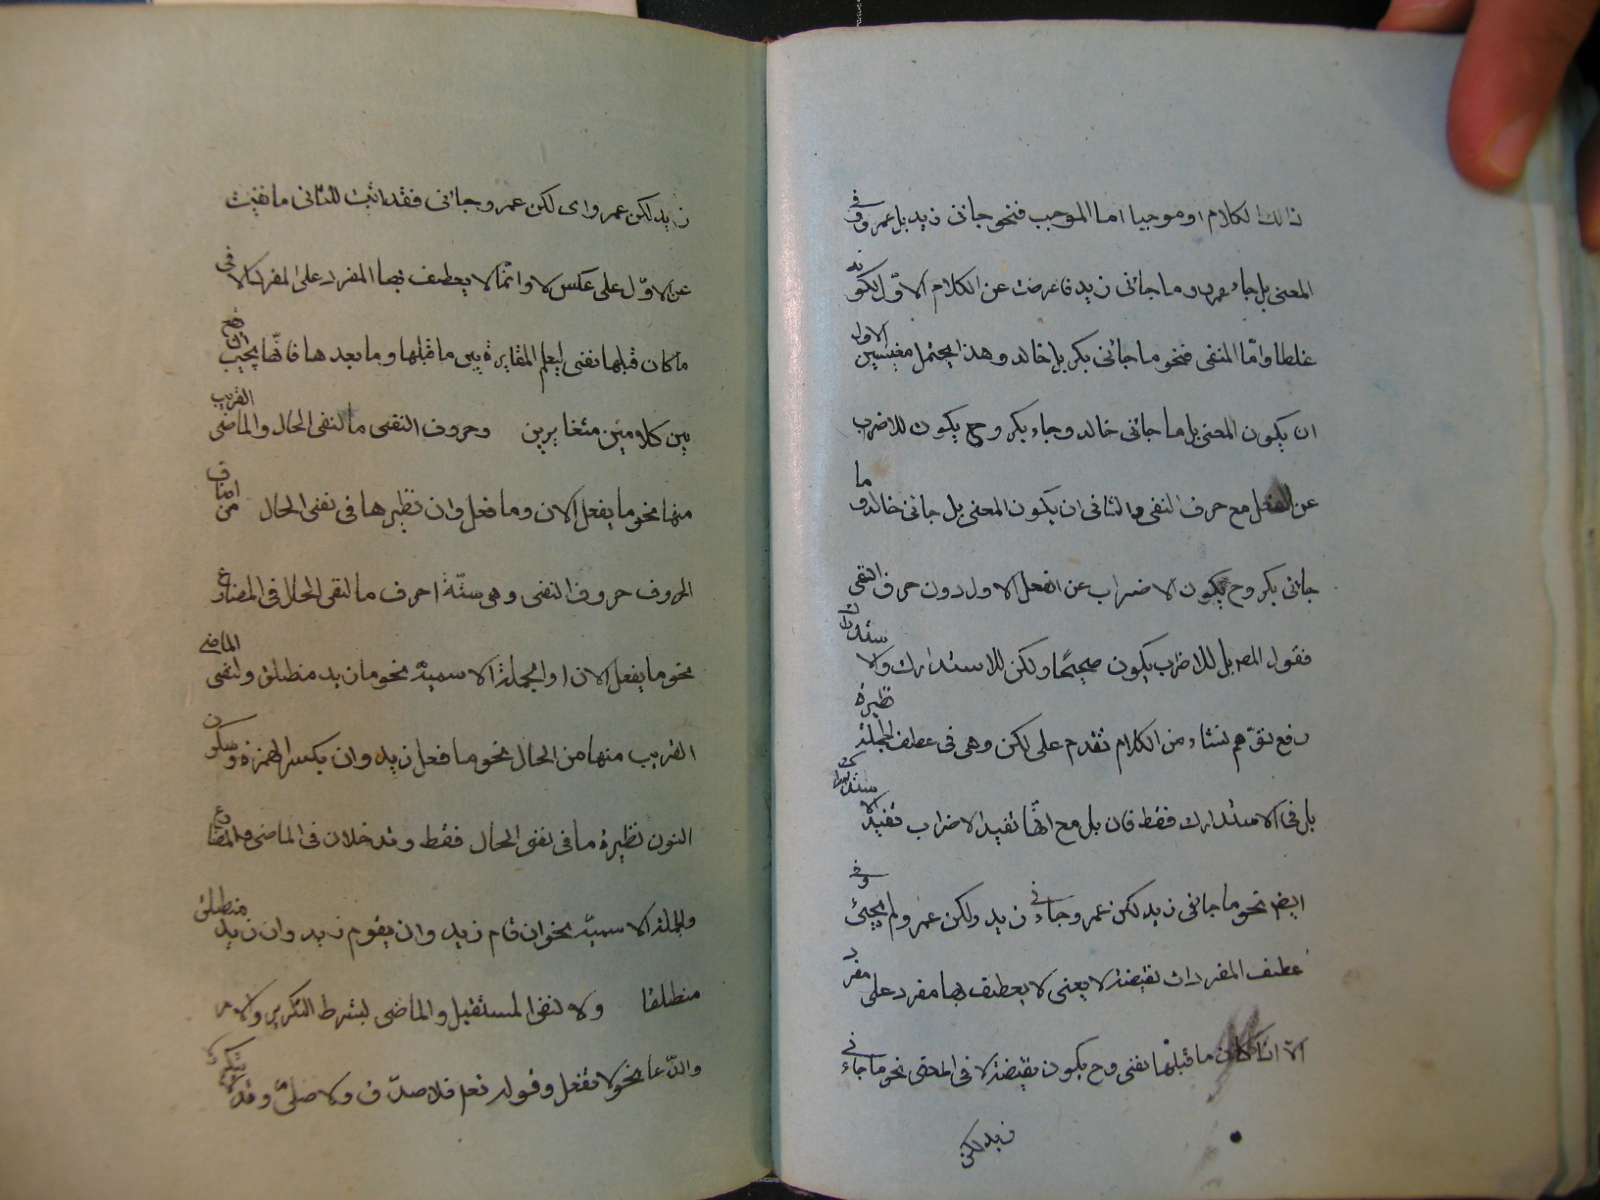 ذالك الكلام او موجبا اما الموجب فنحو جانى زيد بل عمرو وفى
المعنى بل جاء عمرو وما جانى زيد فاعرضت عن الكلام الاوّل لكونه
غلطا وامّا المنفى فنحو ما جانى بكر بل خالد وهذا يحتمل معنيين الاول
ان يكون المعنى بل ما جانى خالد وجاء بكر وح يكون للاضرب
عن الفعل مع حرف النفى والثانى ان يكون المعنى بل جانى خالد وما
جانى بكر وح يكون الاضراب عن الفعل الاول دون حرف النفى
فقول المص بل للاضرب يكون صحيحًا ولكن للاستدارك والاستدراك
دفع توّهم نشاء من الكلام تقدم على لكن وهى فى عطف الجملة نظيرة
بل فى الاستدارك فقط فان بل مع انّها تفيد الاضراب تفيد الاستدراك
ايضا نحو ما جانى زيد لكن عمرو جاءنى زيد ولكن عمرو لم يجئ وفى
عطف المفردات نقيضة لا يعنى لا يعطف بها مفرد على مفرد
الّا اذا كان ما قبلها نفى وح يكون نقيضة لا فى المعنى نحو ما جاءنى
زيد لكن
زيد لكن عمرو اى لكن عمرو جانى فقد اثبت للثانى ما نفيت
عن الاوّل على عكس لا وانّما لا يعطف بها المفرد على المفرد الا فى
ما كان قبلها نفى ليعلم المقايرة بين ما قبلها وما بعدها فانّها يجيب
بين كلامين متغايرين وحروف النفى ما لنفى الحال والماضى القريب
منها نحو ما يفعل الان وما فعل وان نظيرها فى نفى الحال من اصناف
الحروف حروف النفى وهى ستّة احرف ما لنفى الحال فى المضارع
نحو ما يفعل الان او الجملة الاسميّة نحو ما زيد منطلق ولنفى الماضى
القريب منها من الحال نحو ما فعل زيد وان بكسر الهمزة وسكون
النون نظيرة ما فى نفى الحال فقط وتدخلان فى الماضى والمضارع
والجملة الاسميّة نحو ان قام زيد وان يقوم زيد وان زيد منطلق
منطلقا ولا لنفى المستقبل والماضى بشرط التكرير والامر
والدّعا نحو لا تفعل وقوله تعلم فلا صدّق ولا صلىّ وقد